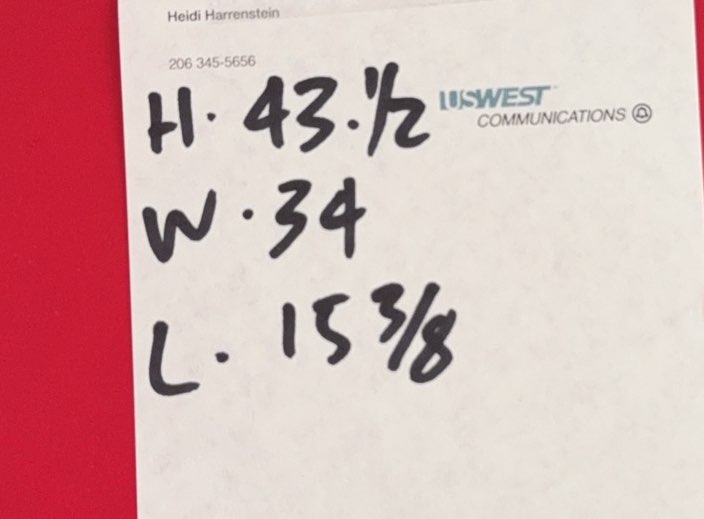 Heidi Harrenstein
206 345-5656
H. 43.1/2
USWEST
COMMUNICATIONS
W. 34
L. 15 3/8